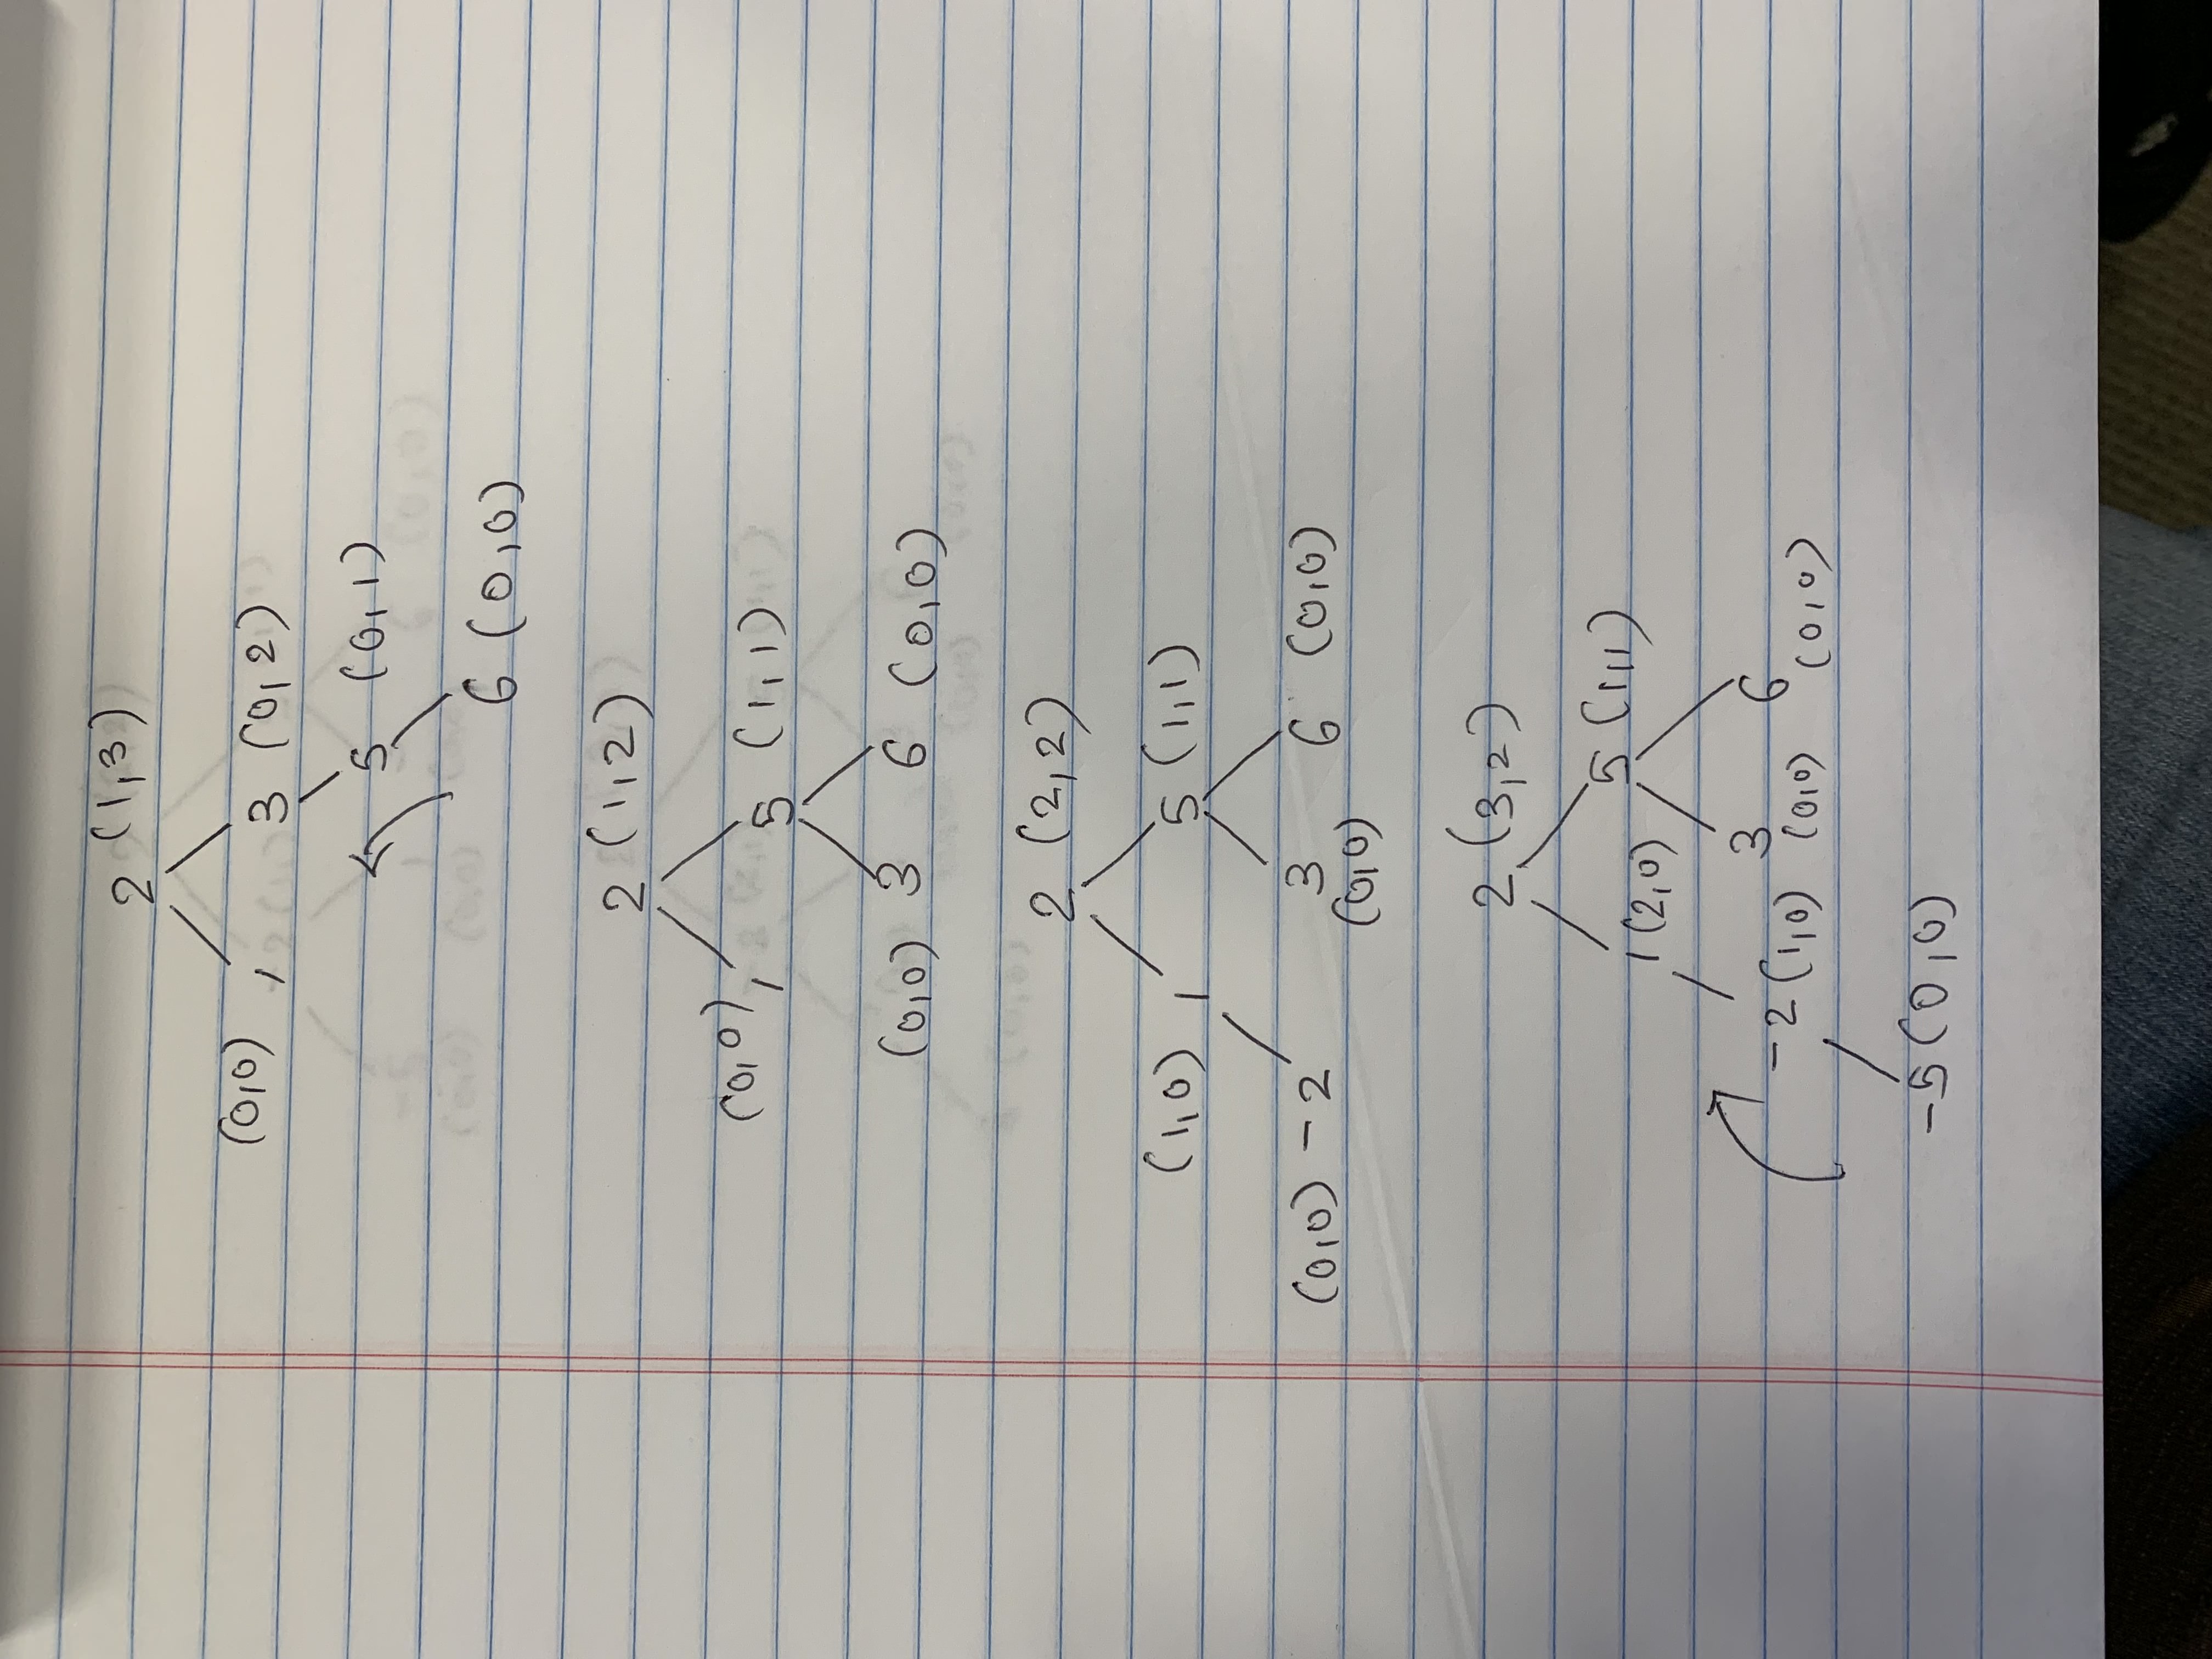 2 (1,3)
(0,0) 1 3 (0,2)
5 (0,1)
6 (0,0)
2 (1,2)
(0,0) 1 5 (1,1)
(0,0) 3 6 (0,0)
2 (2,2)
(1,0) 1 5 (1,1)
(0,0) -2 3 6 (0,0)
(0,0)
2 (3,2)
5 (1,1)
1 (2,0)
-2 (1,0) 3 6
(0,0) (0,0)
-5 (0,0)